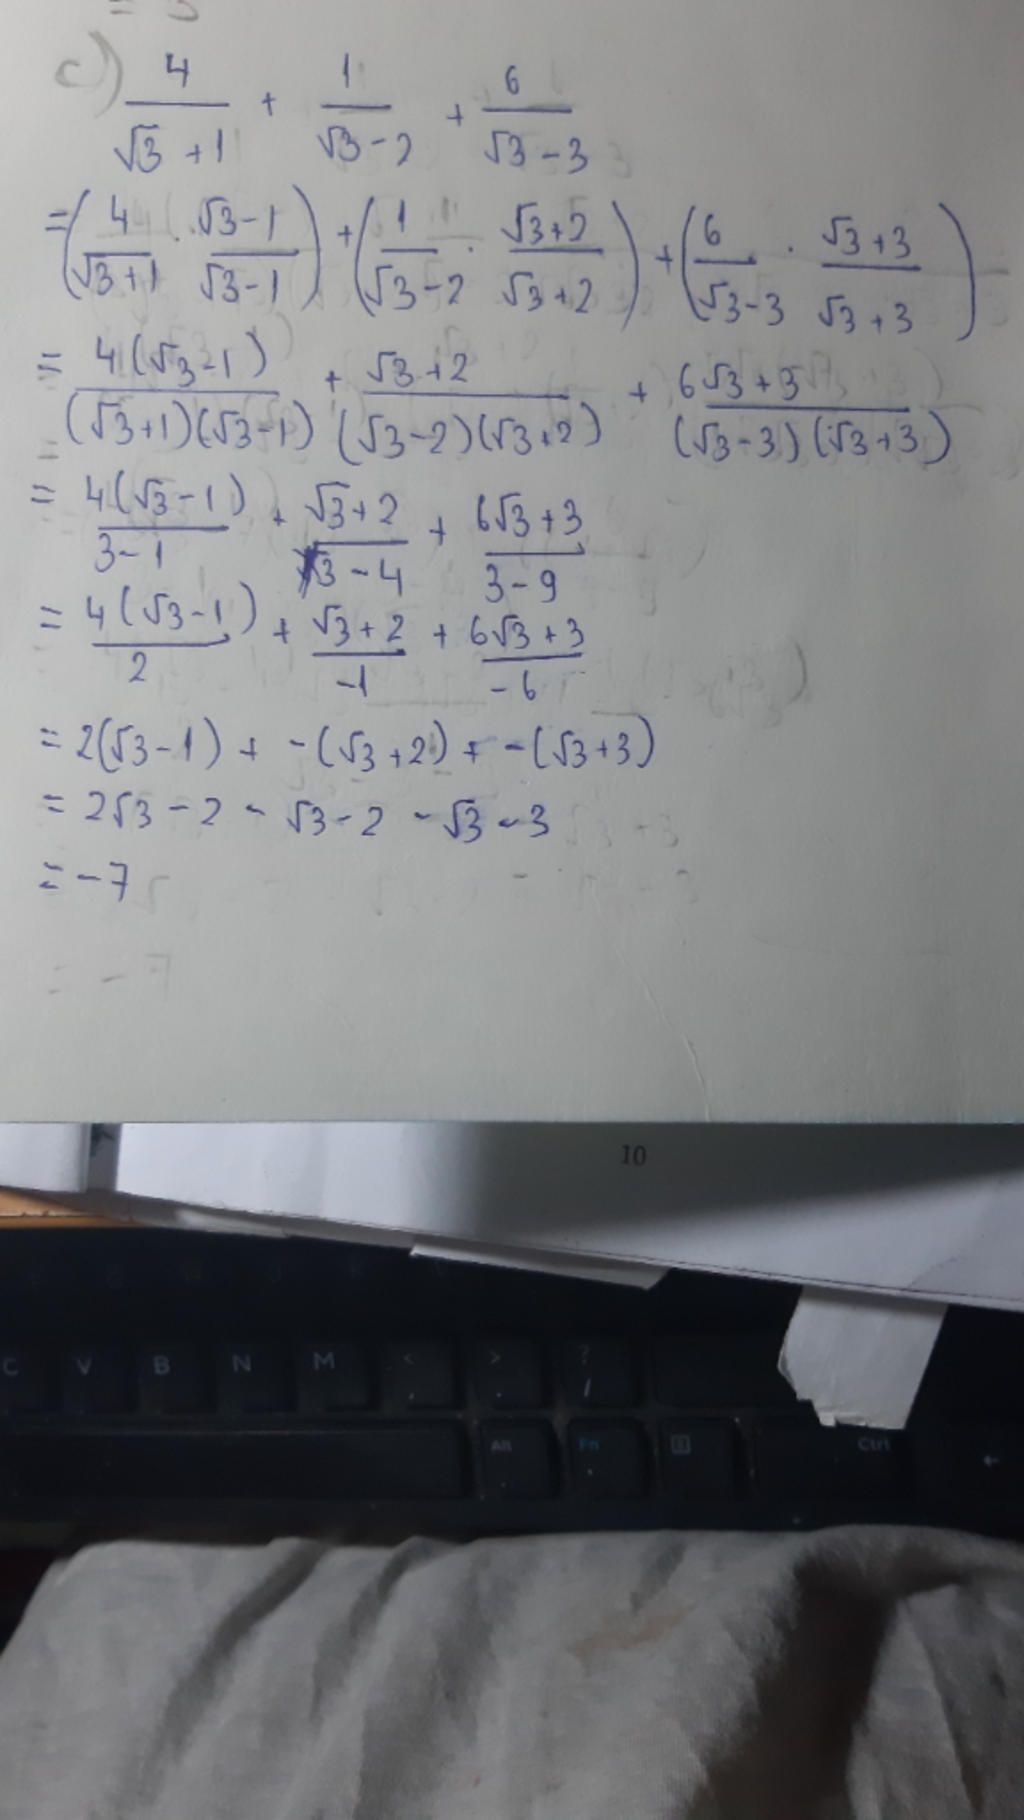 c) 4/(√3 + 1) + 1/(√3 - 2) + 6/(√3 - 3)
= (4/(√3+1) · (√3-1)/(√3-1)) + (1/(√3-2) · (√3+2)/(√3+2)) + (6/(√3-3) · (√3+3)/(√3+3))
= 4(√3-1)/((√3+1)(√3-1)) + (√3+2)/((√3-2)(√3+2)) + (6√3+3)/((√3-3)(√3+3))
= 4(√3-1)/(3-1) + (√3+2)/(3-4) + (6√3+3)/(3-9)
= 4(√3-1)/2 + (√3+2)/-1 + (6√3+3)/-6
= 2(√3-1) + -(√3+2) + -(√3+3)
= 2√3 - 2 - √3 - 2 - √3 - 3
= -7
= -7
10
C V B N M < , > . ? /
Alt Fn Ctrl